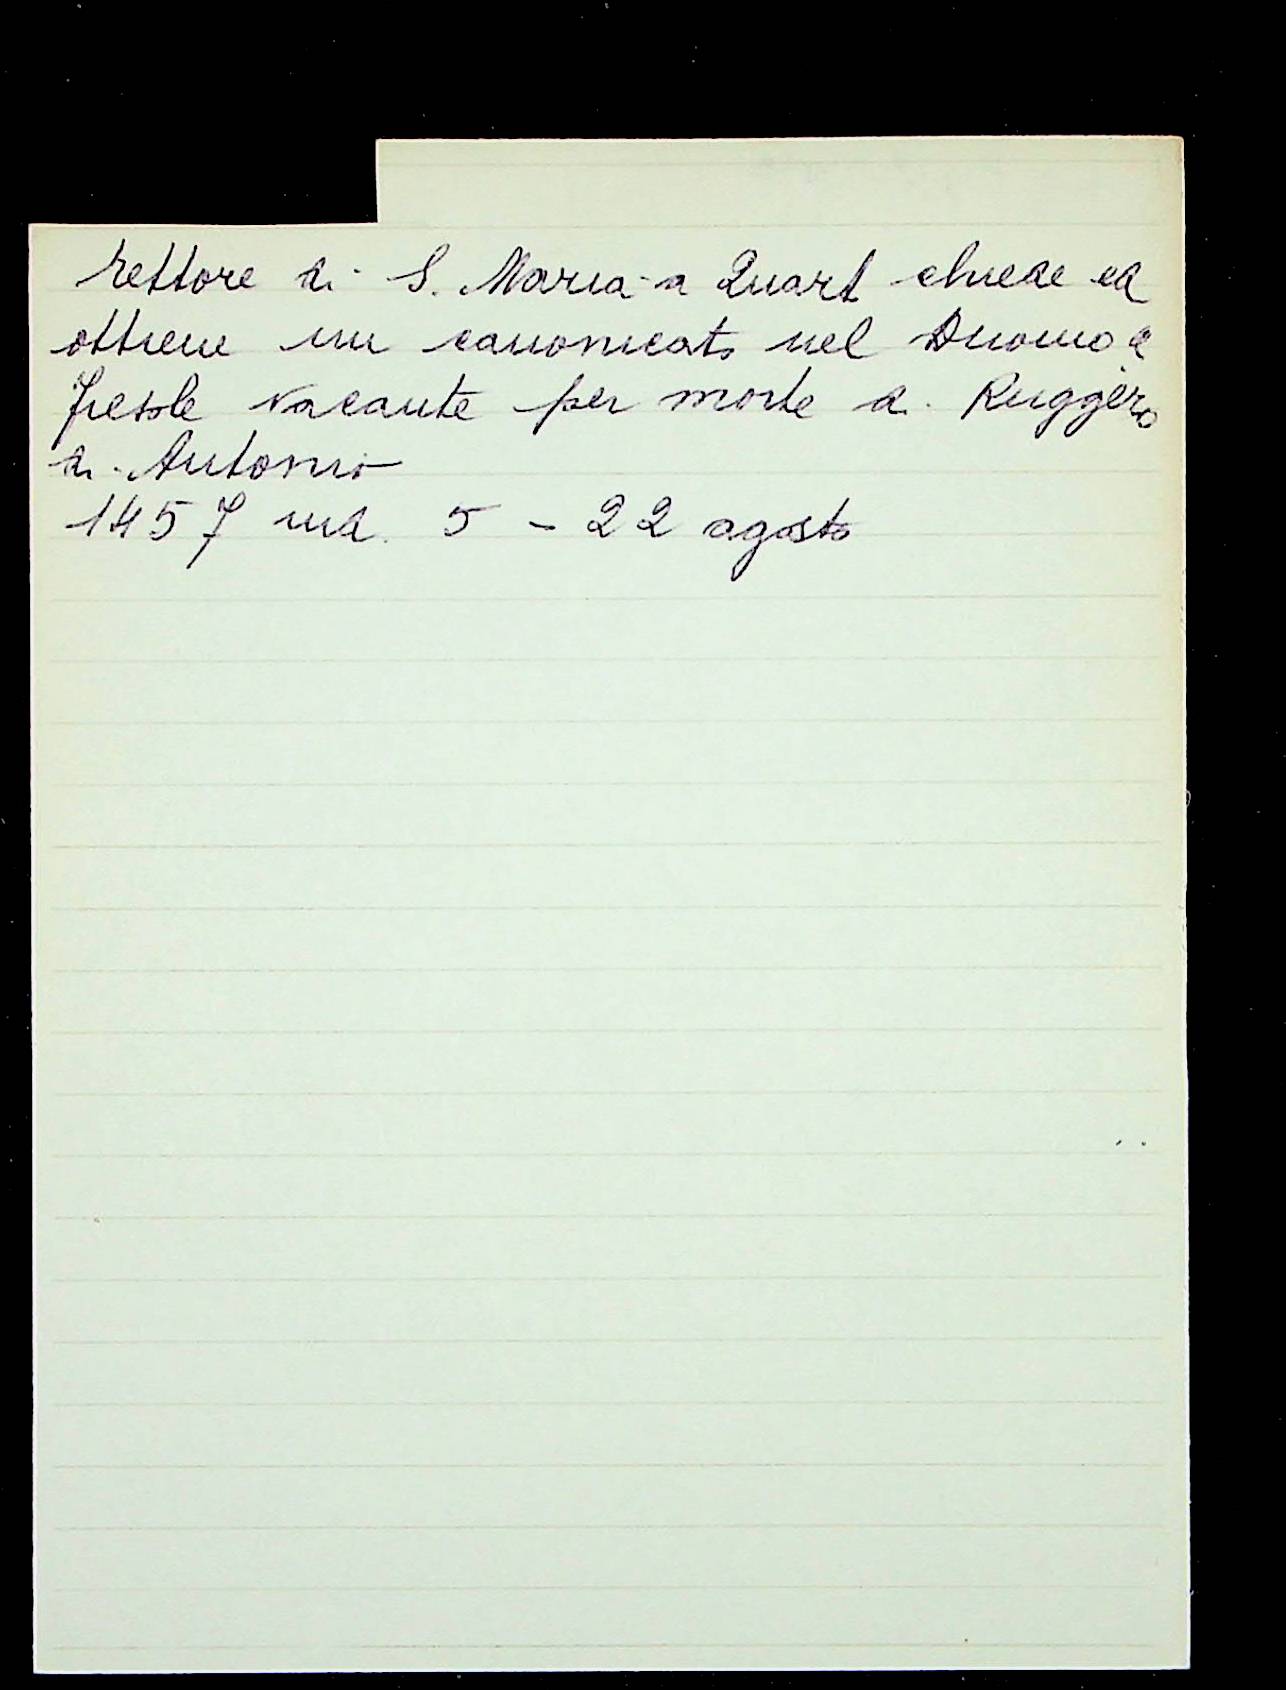 rettore di S. Maria a Quart chiede ed
ottiene un canonicato nel Duomo di
Fiesole vacante per morte di Ruggero
di Antonio
1457 ind. 5 - 22 agosto